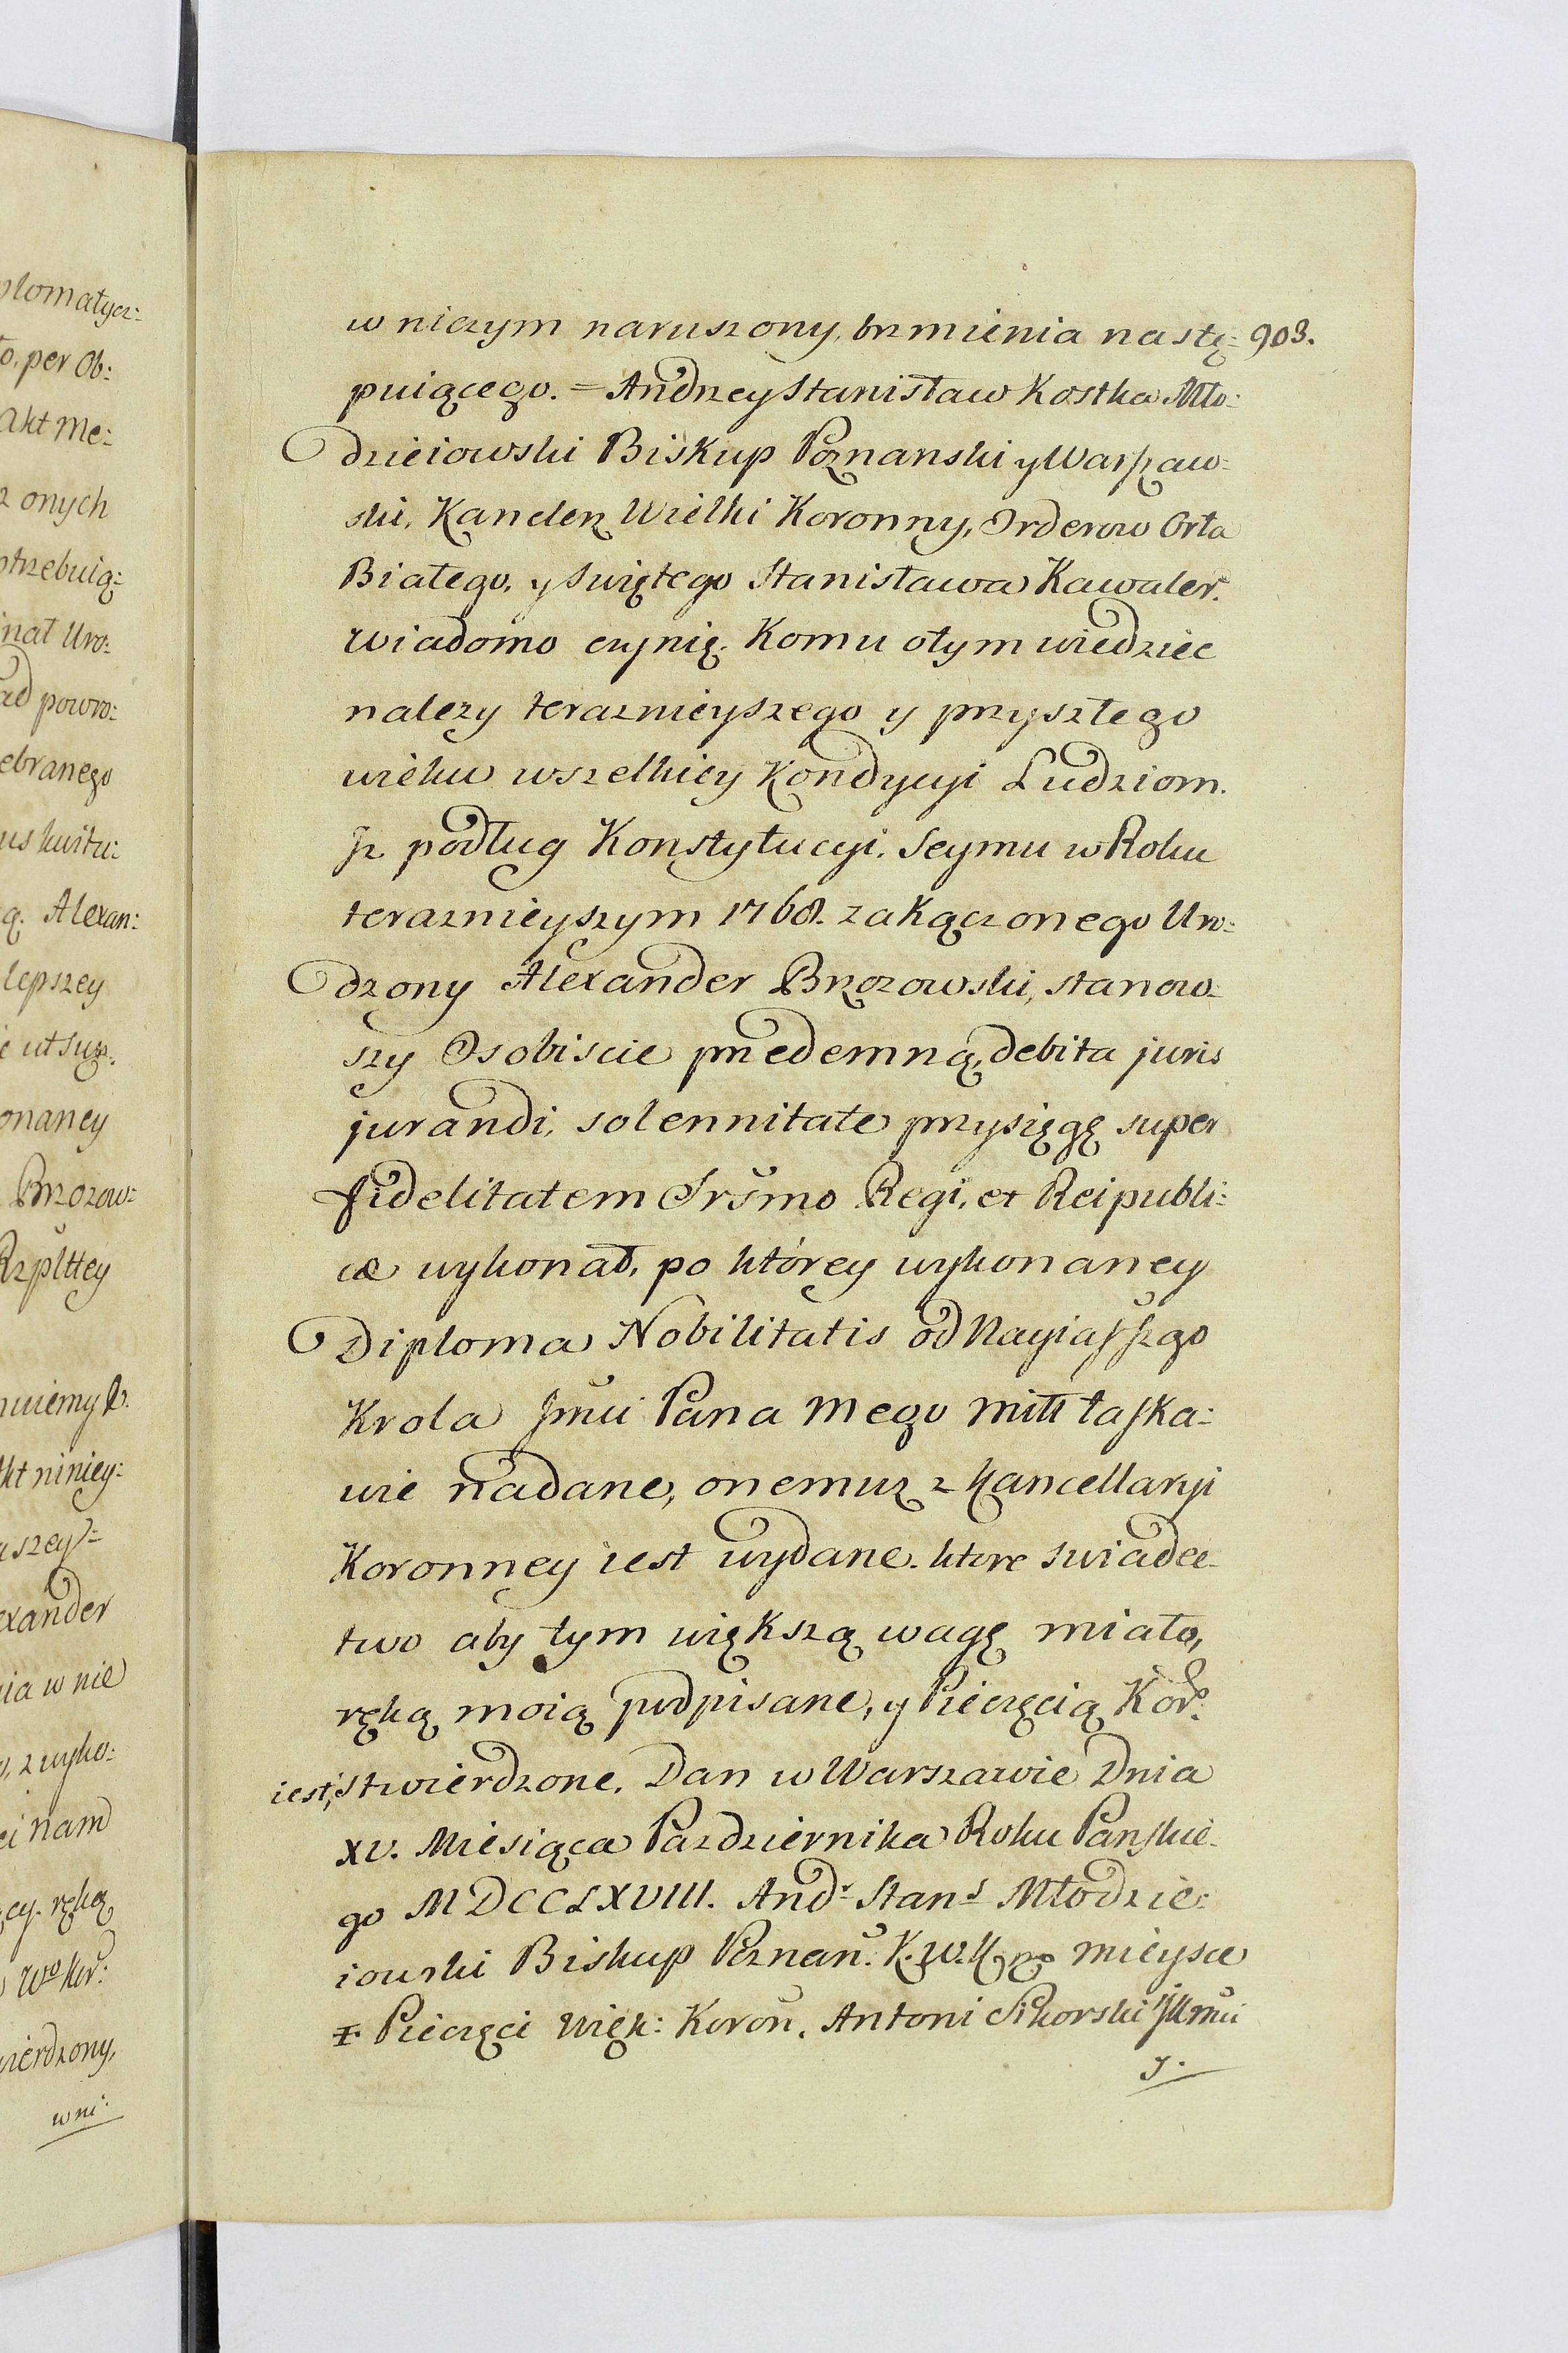 plomatycz:
to, per Ob:
Akt Me:
z onych
otrzebuią:
inał Uro:
ad powro:
ebranego
us kwitu:
ą. Alexan:
lepszey
e ut sup.
onaney
Brzozow:
Rzplttey
nuiemy
Akt niniey:
aszey:
exander
ia w nie
, z wyko:
ei nam
cy. ręką
Wo Kor:
wierdzony,
w ni:
w niczym naruszony, brzmienia nastę: 903.
puiącego. = Andrzey Stanisław Kostka Mło:
dzieiowski Biskup Poznanski y Warszaw:
ski, Kanclerz Wielki Koronny, Orderow Orła
Białego, y Swiętego Stanisława Kawaler.
Wiadomo czynię. Komu o tym wiedziec
nalezy teraznieyszego y przyszłego
wieku wszelkiey Kondycyi Ludziom.
Jz podług Konstytucyi, Seymu w Roku
teraznieyszym 1768. zakączonego Uro:
dzony Alexander Brzozowski, stanow:
szy Osobiscie przedemną, debita juris
jurandi, solennitate przysięgę super
fidelitatem Srsmo Regi, et Reipubli:
cæ wykonał, po którey wykonaney
Diploma Nobilitatis od Nayiasszgo
Krola Jmci Pana Mego Mitt łaska:
wie nadane, onemuz z Kancellaryi
Koronney iest wydane. ktore swiadec
two aby tym większą wagę miało,
ręką moią podpisane, y Pieczęcią Kor.
iest, stwierdzone. Dan w Warszawie Dnia
XV. Miesiąca Pazdziernika Roku Panskie
go MDCCLXVIII. Andr Stans Młodzie:
iowski Biskup Poznan. K. W. K. mieysce
Pieczęci Więk: Koron. Antoni Sikorski JKmci
y.